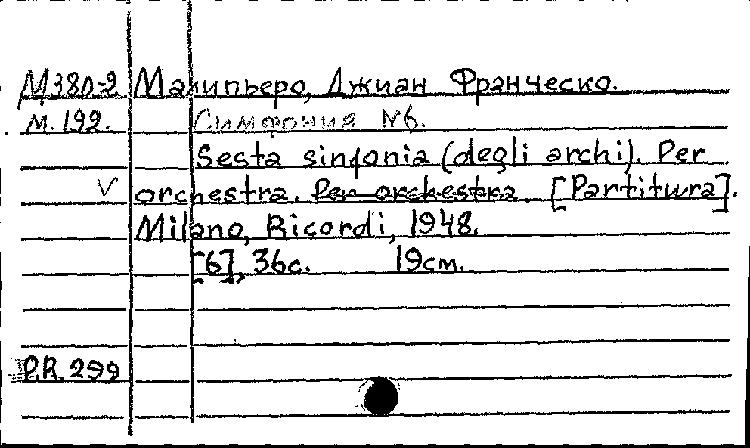 М380-2 Малипьеро, Джиан Франческо.
м.192. Симфония №6.
Sesta sinfonia (degli archi). Per
v orchestra. Per orchestra. [Partitura].
Milano, Ricordi, 1948.
[6], 36с. 19см.
P.R. 299